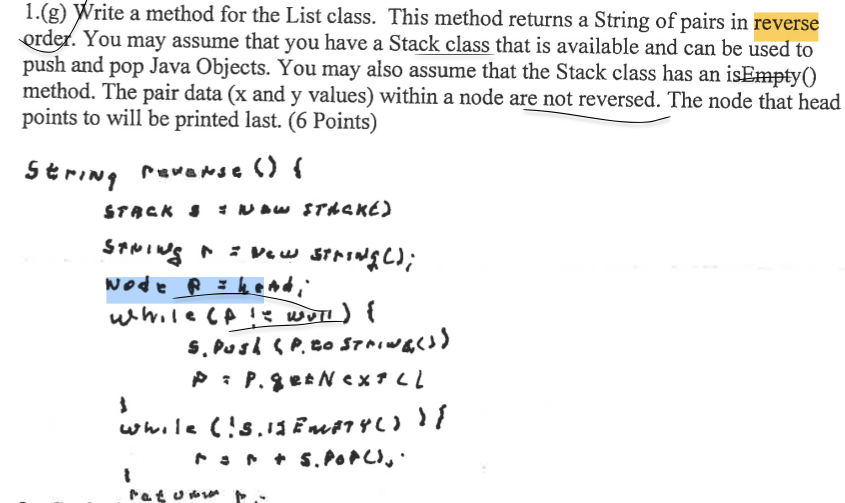 1.(g) Write a method for the List class. This method returns a String of pairs in reverse
order. You may assume that you have a Stack class that is available and can be used to
push and pop Java Objects. You may also assume that the Stack class has an isEmpty()
method. The pair data (x and y values) within a node are not reversed. The node that head
points to will be printed last. (6 Points)
String reverse() {
STACK s = New STACK()
STRING r = New STRING();
Node P = head;
while (P != null) {
s.Push (P.toSTRING())
P = P.getNext()
}
while (!s.isEMPTY()) {
r = r + s.POP();
}
return r;